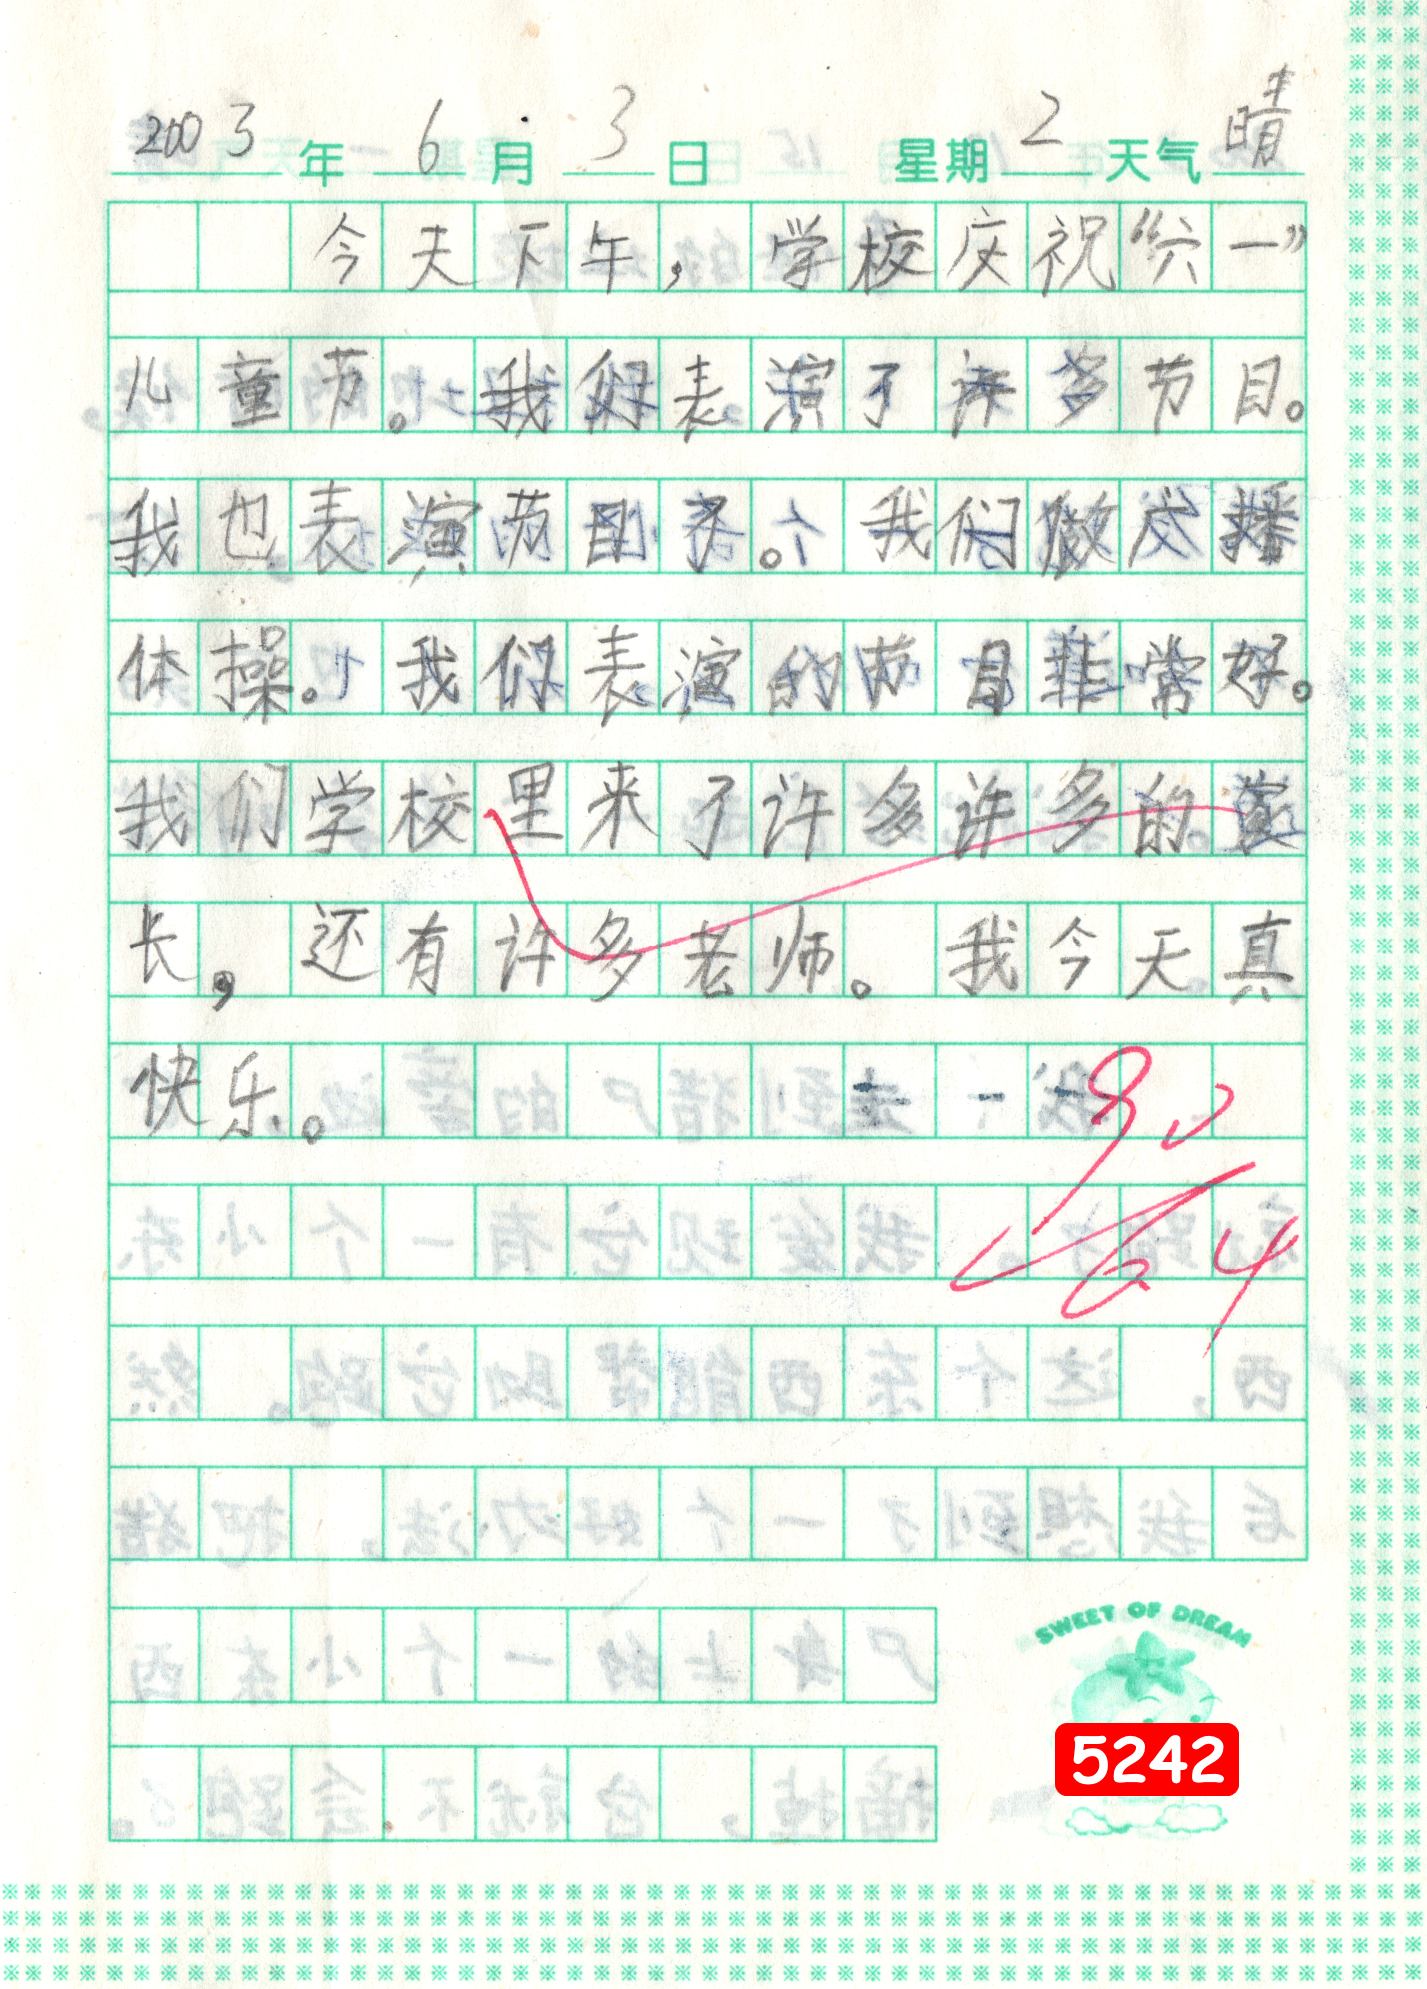 2003年6月3日 星期2天气晴
今天下午，学校庆祝“六一”
儿童节。我们表演了许多节目。
我也表演节目了。我们做广播
体操。我们表演的节目非常好。
我们学校里来了许多许多的家
长，还有许多老师。我今天真
快乐。
SWEET OF DREAM
5242